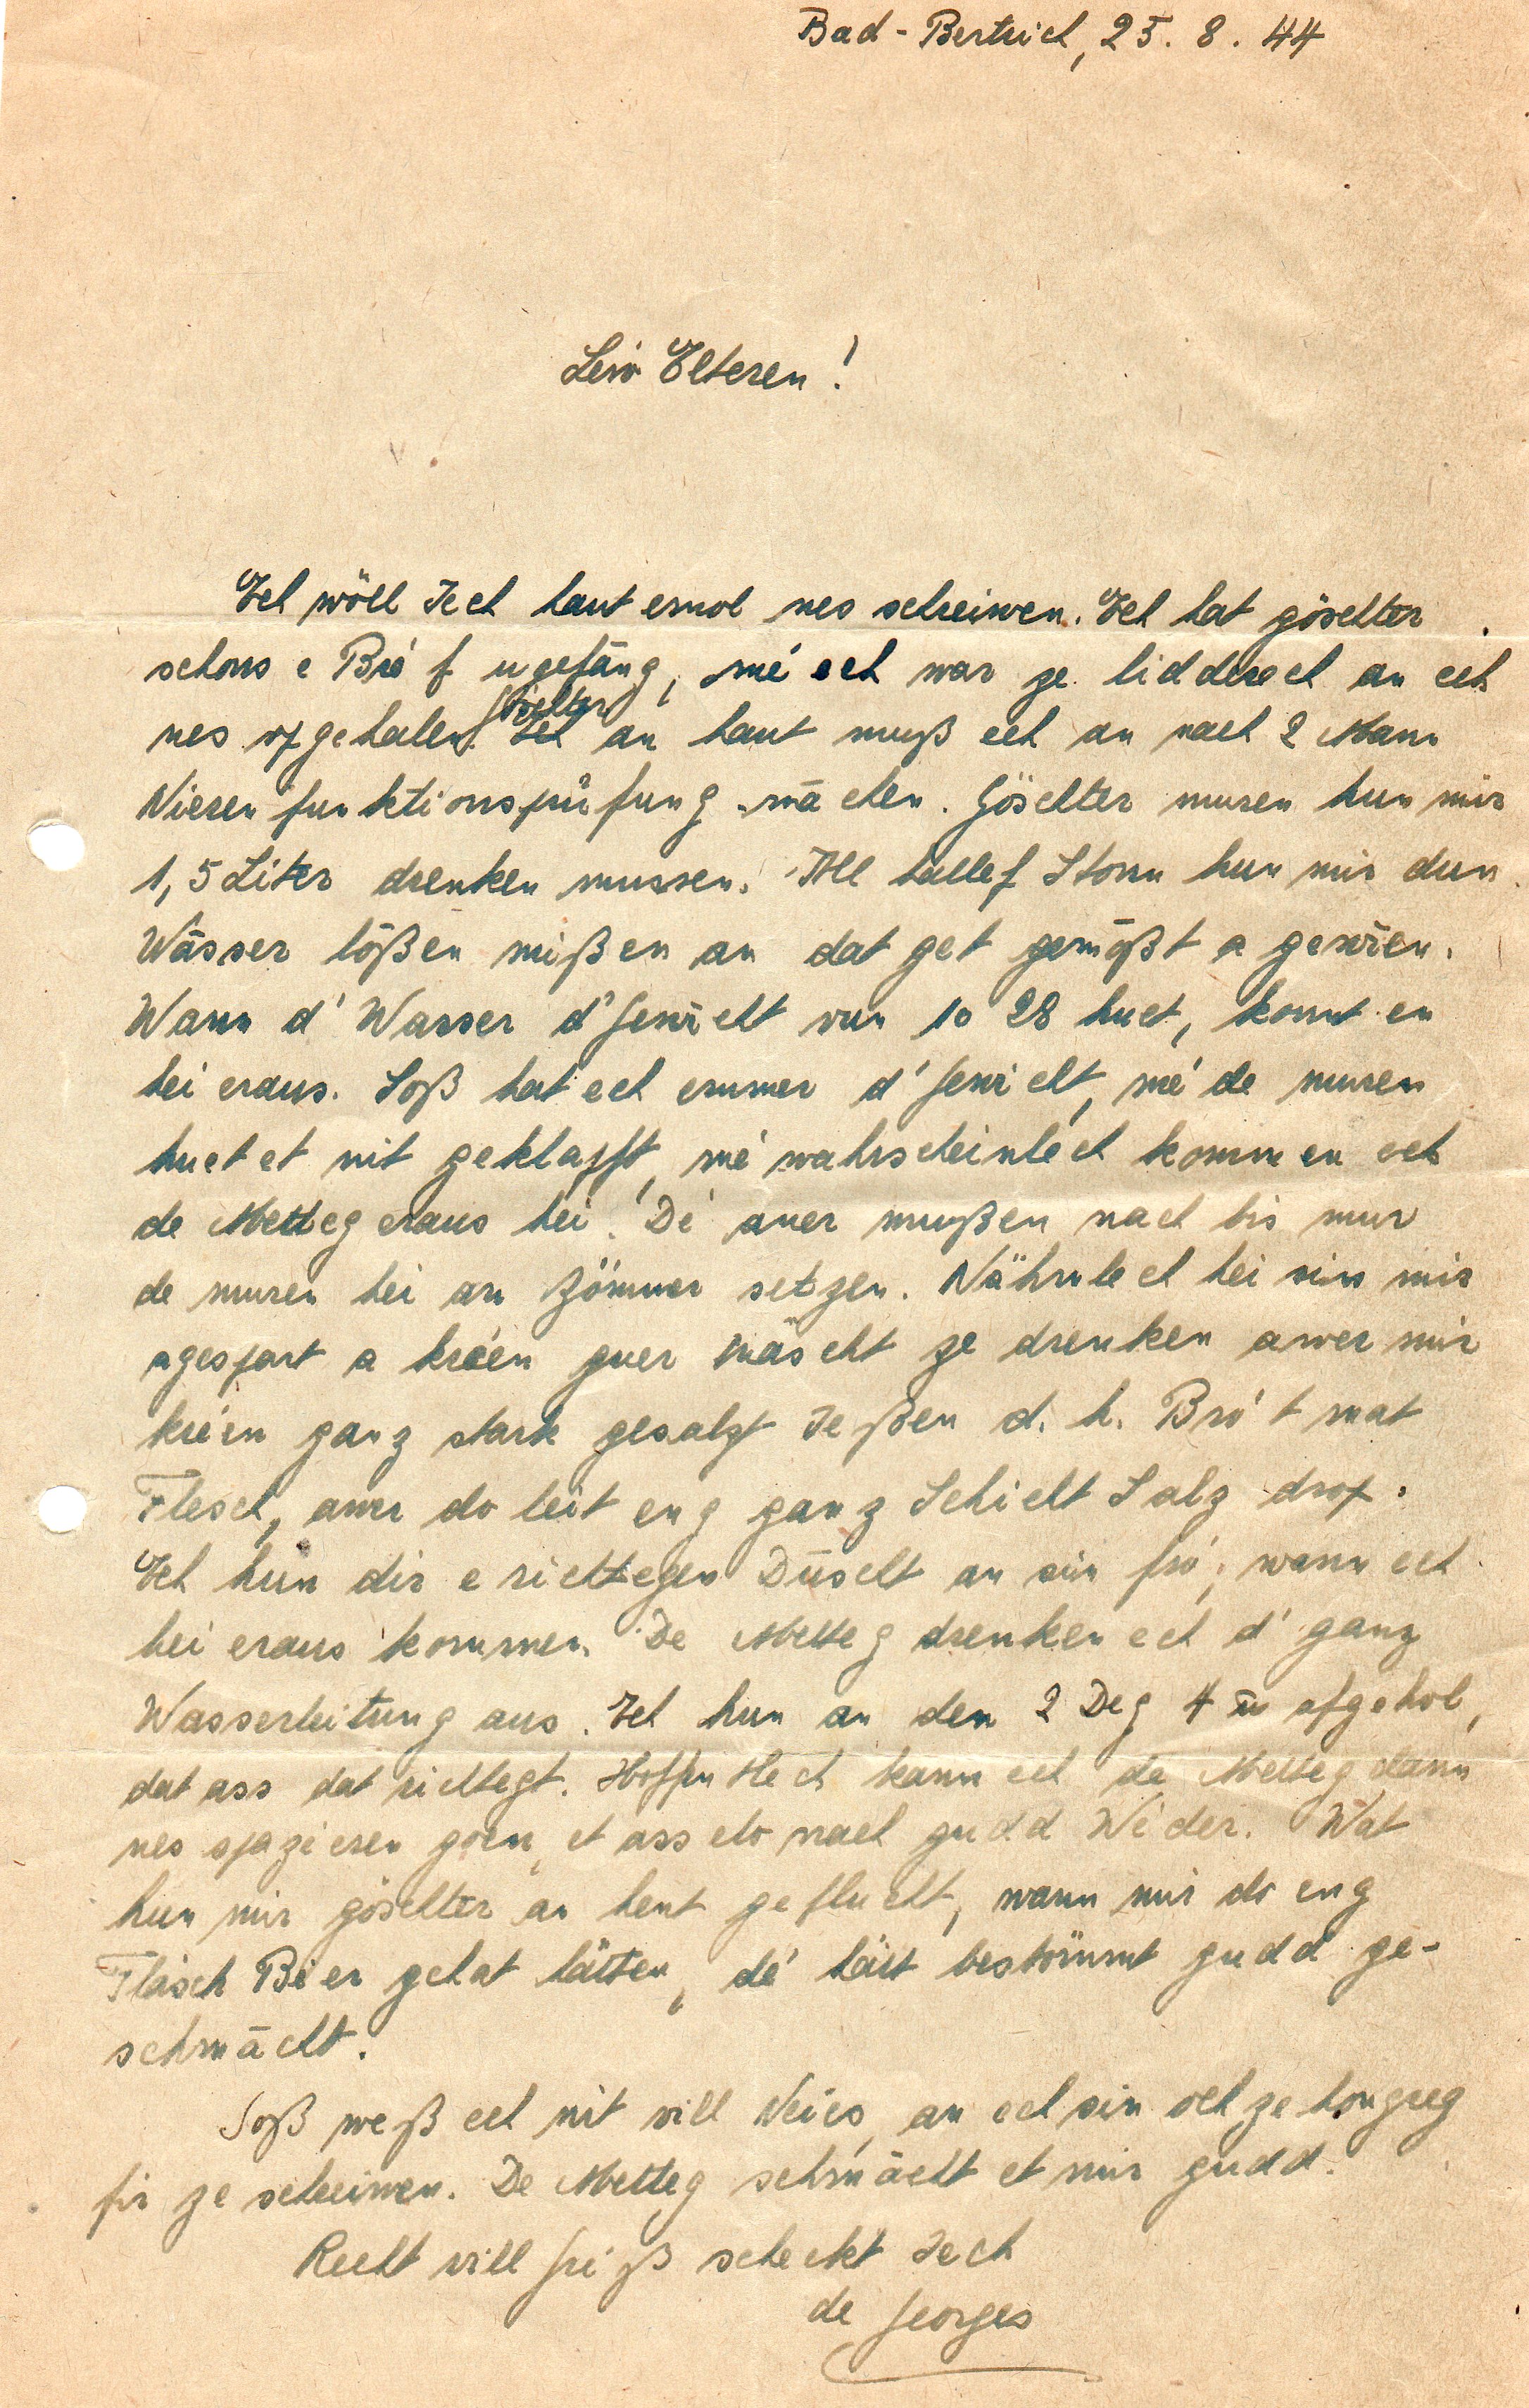 Bad-Bertrich, 25. 8. 44
Leiw Elteren!
Ech wöll Iech haut emol nes schreiwen. Ech hat göschter
schons e Bréf ugefang, mé ech war ze lidderech an ech
nes opgehalen. Göschter an haut muß ech an nach 2 Mann
Nierenfunktionsprüfung māchen. Göschter muren hun mir
1,5 Liter drenken mussen. All hallef Stonn hun mir dun
Wāsser lößen mißen an dat get gemößt a gewien.
Wann d' Wasser d'Gewicht vun 10 28 huet, kommt en
hei eraus. Soß hat ech emmer d'Gewicht, mé de muren
huet et nit geklappt, mé wahrscheinléch kommen ech
de Metteg eraus hei. Dé aner mußen nach bis mur
de muren hei am Zömmer setzen. Nähmlech hei sin mir
agespart a kréen guer näscht ze drenken awer mir
kréen ganz stark gesalzt Ießen d. h. Bró't mat
Flesch, awer do leit eng ganz Schicht Salz drop.
Ech hun dir e richtegen Dūscht an sin fró, wann ech
hei eraus kommen. De Metteg drenken ech d'ganz
Wasserleitung aus. Ech hun an den 2 Deg 4 ℔ ofgehol,
dat ass dat richtegt. Hoffentlech kann ech de Metteg dann
nes spazieren goen, et ass elo nach gudd Wieder. Wāt
hun mir göschter an heut geflucht, wann mir do eng
Fläsch Béer gehat hätten, dé hätt bestömmt gudd ge-
schmācht.
Soß weß ech nit vill Neies, an ech sin och ze hongreg
fir ze schreiwen. De Metteg schmācht et mir gudd.
Recht vill Griß scheckt Iech
de Georges